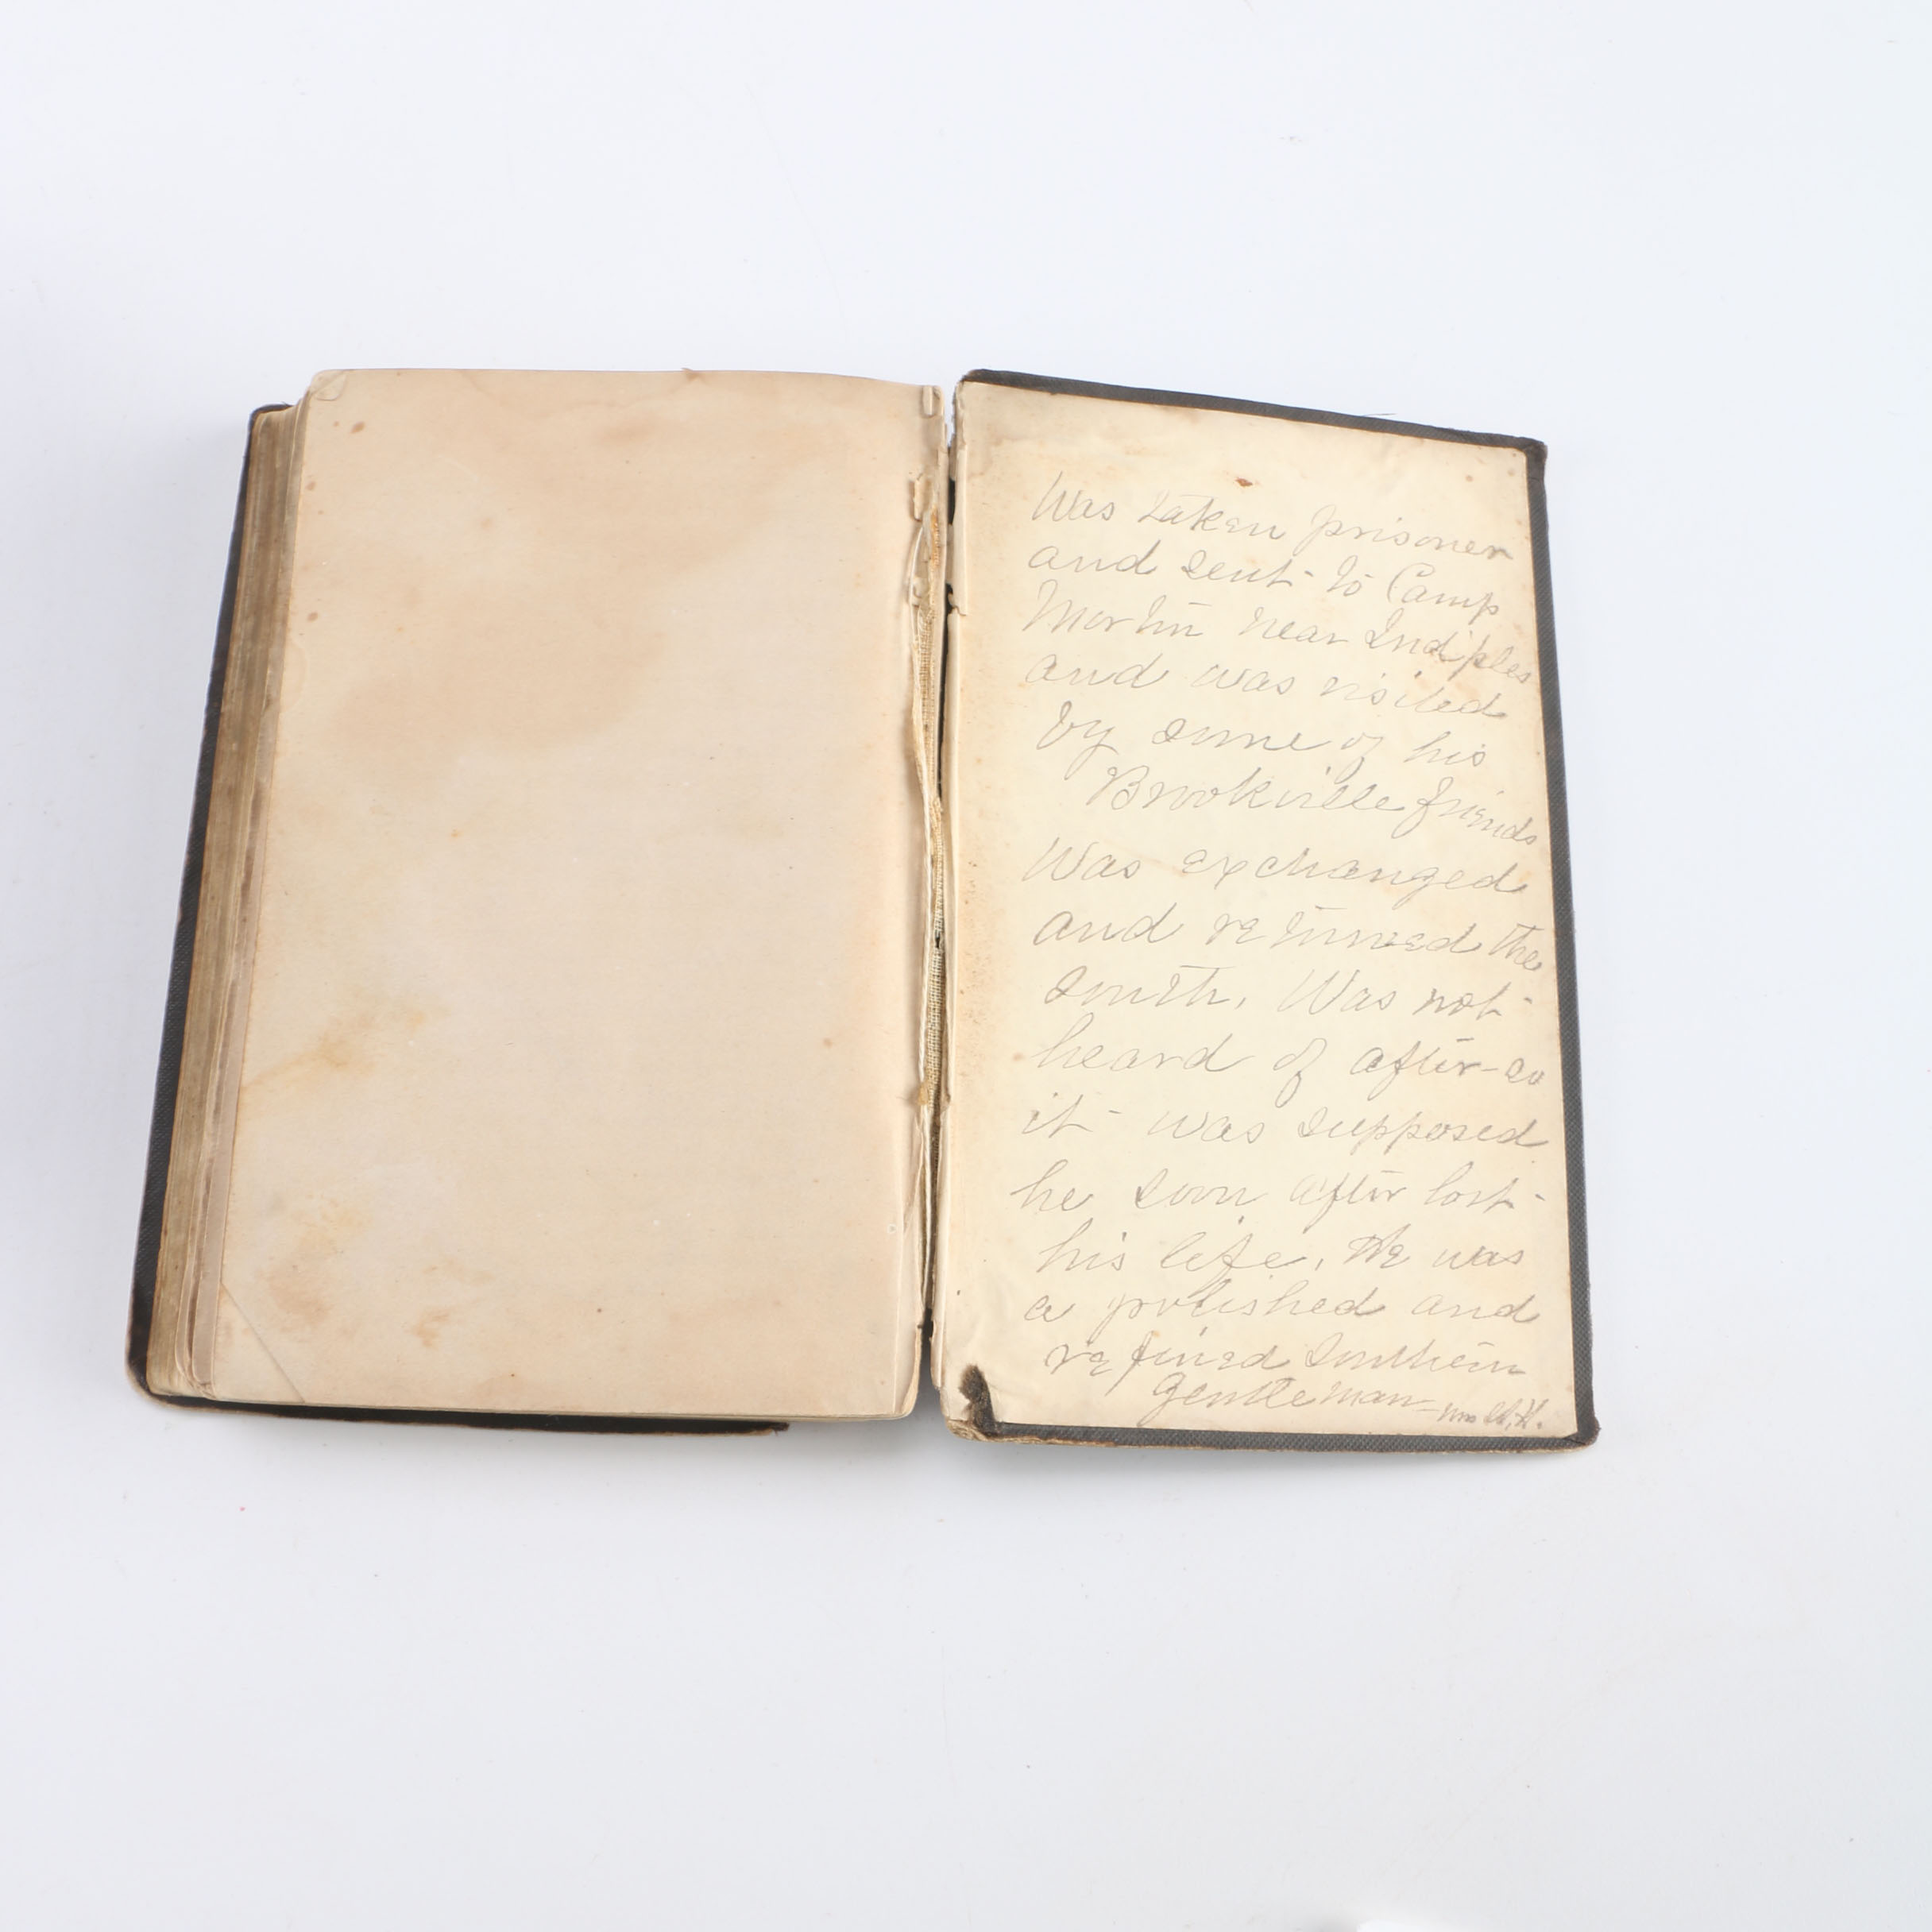 Was taken prisoner
and sent to Camp
Mortin near Ind'ples
and was visited
by some of his
Brookville friends
Was exchanged
and returned the
South. Was not
heard of after - so
it was supposed
he soon after lost
his life. He was
a polished and
refined Southern
Gentleman -